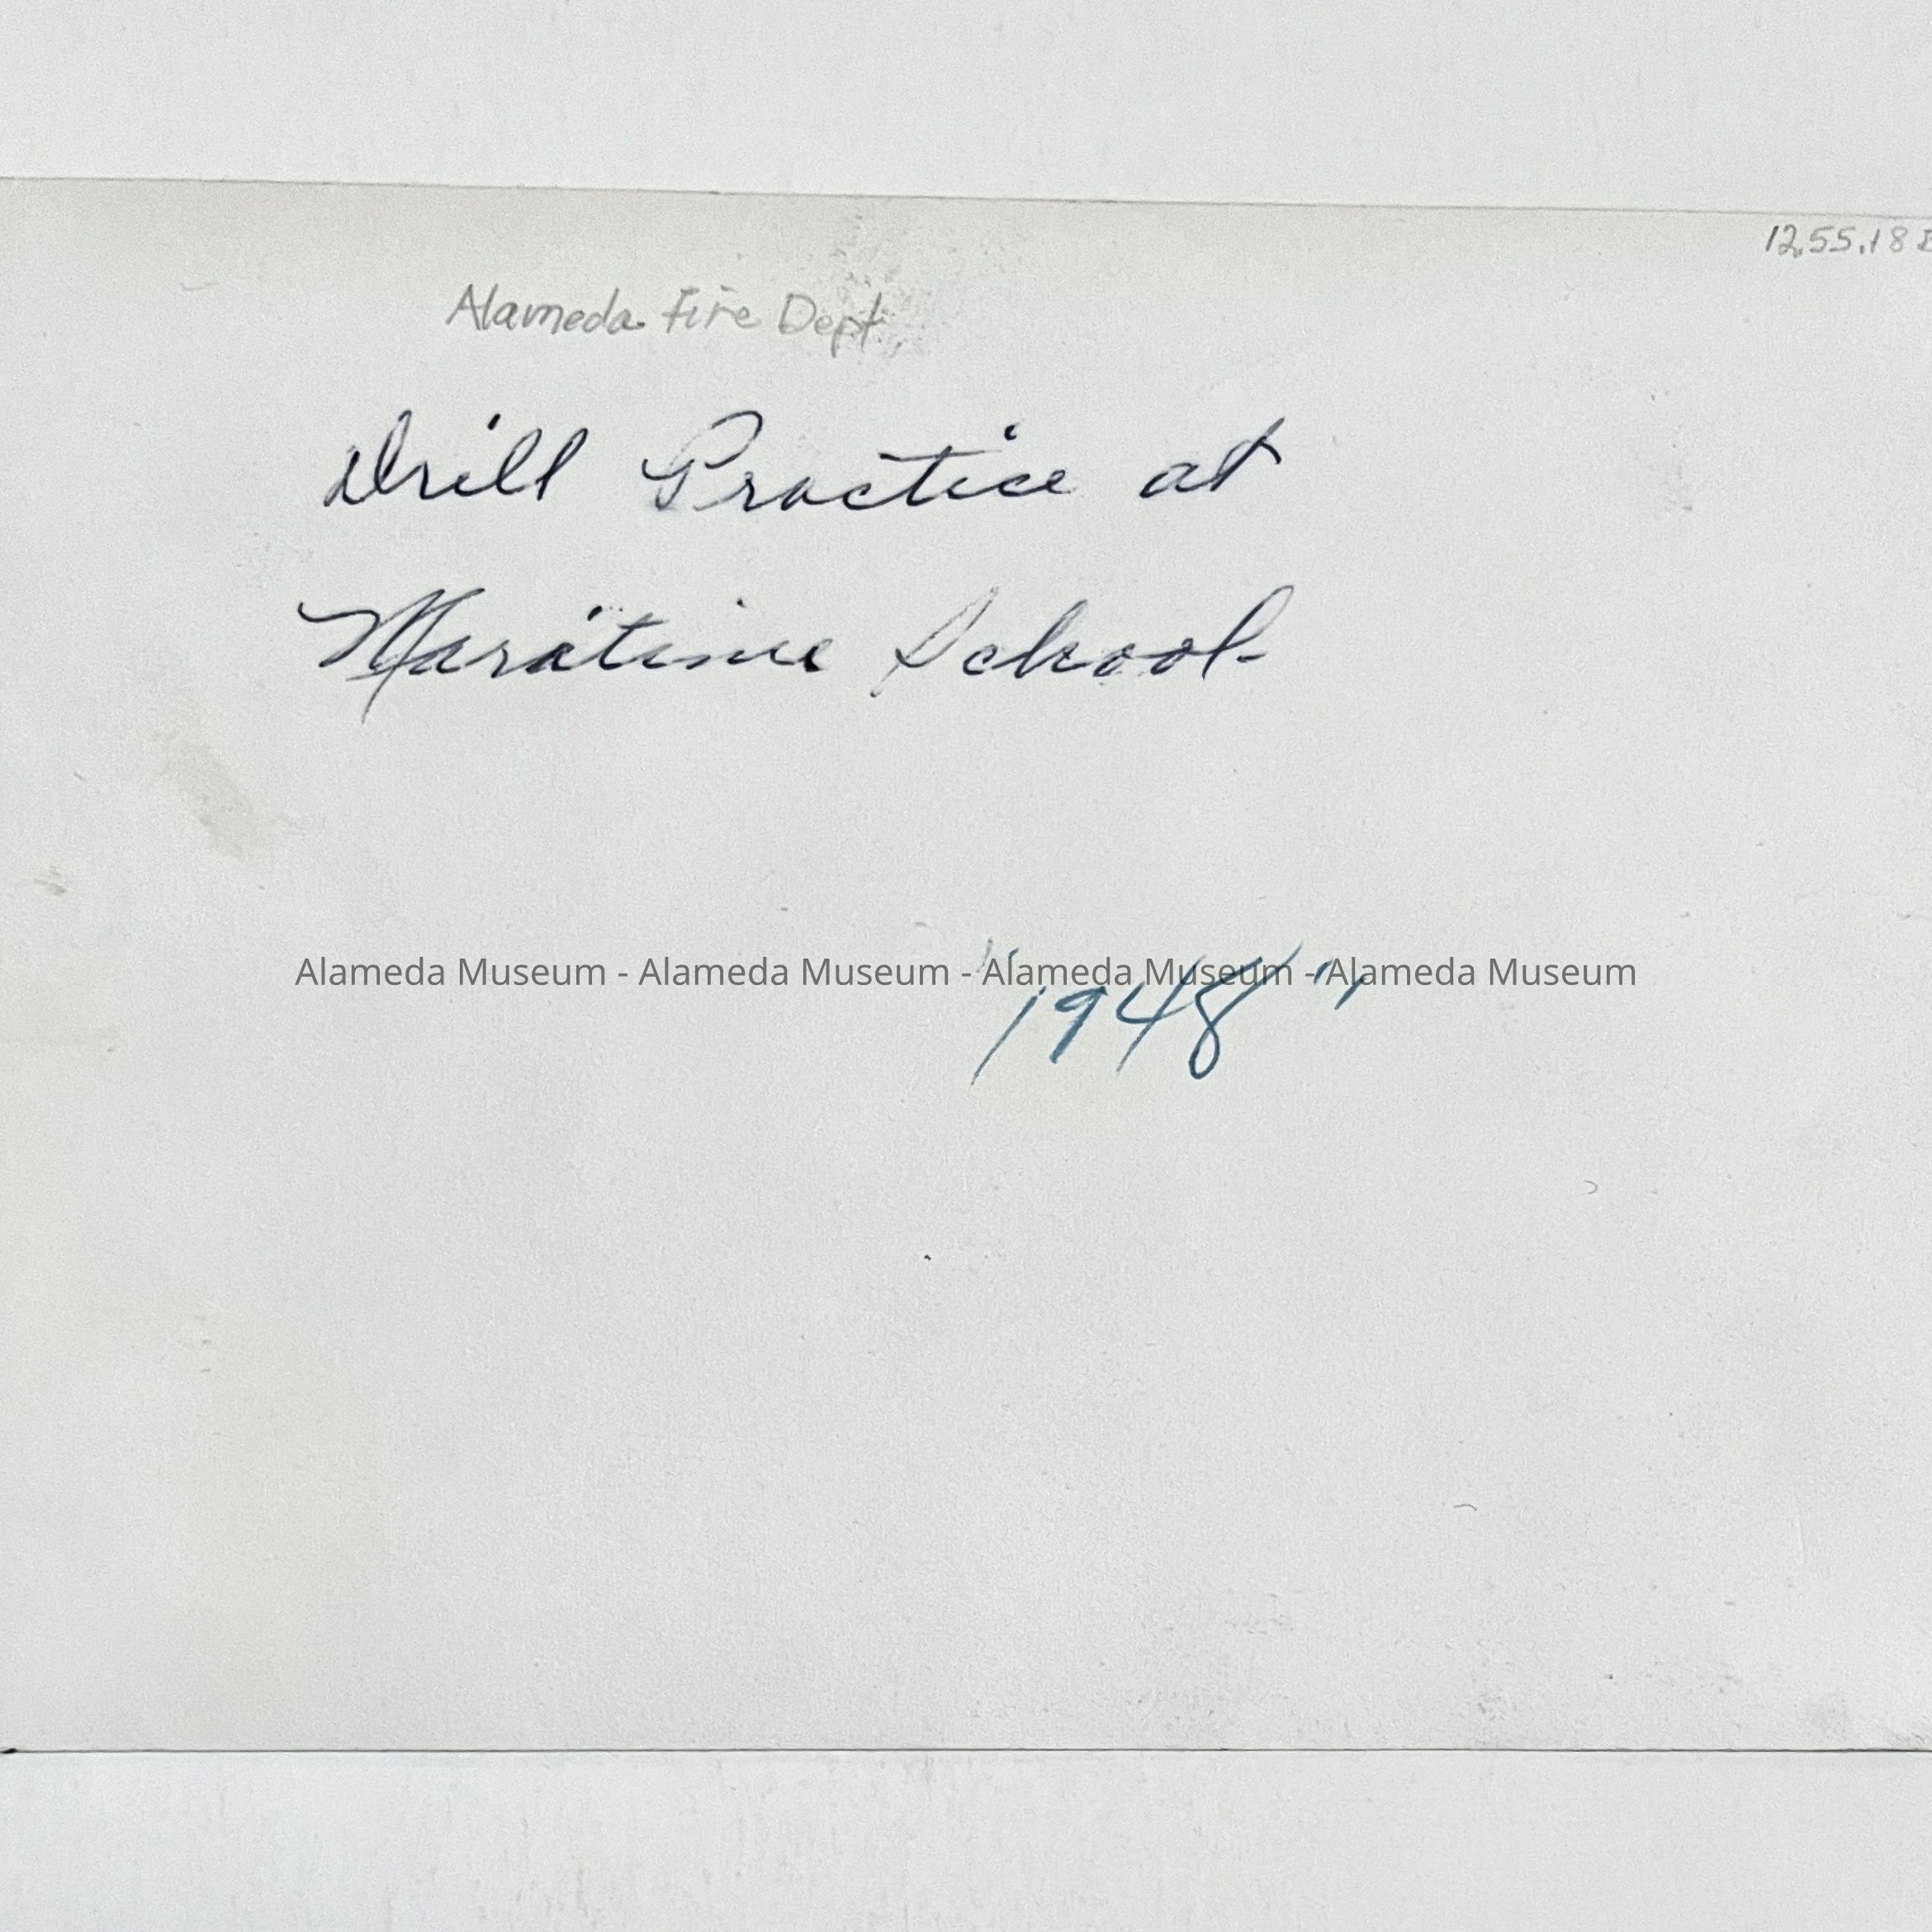 12.55.18
Alameda Fire Dept.
Drill Practice at
Maratime School-
Alameda Museum - Alameda Museum - Alameda Museum - Alameda Museum
"1948"